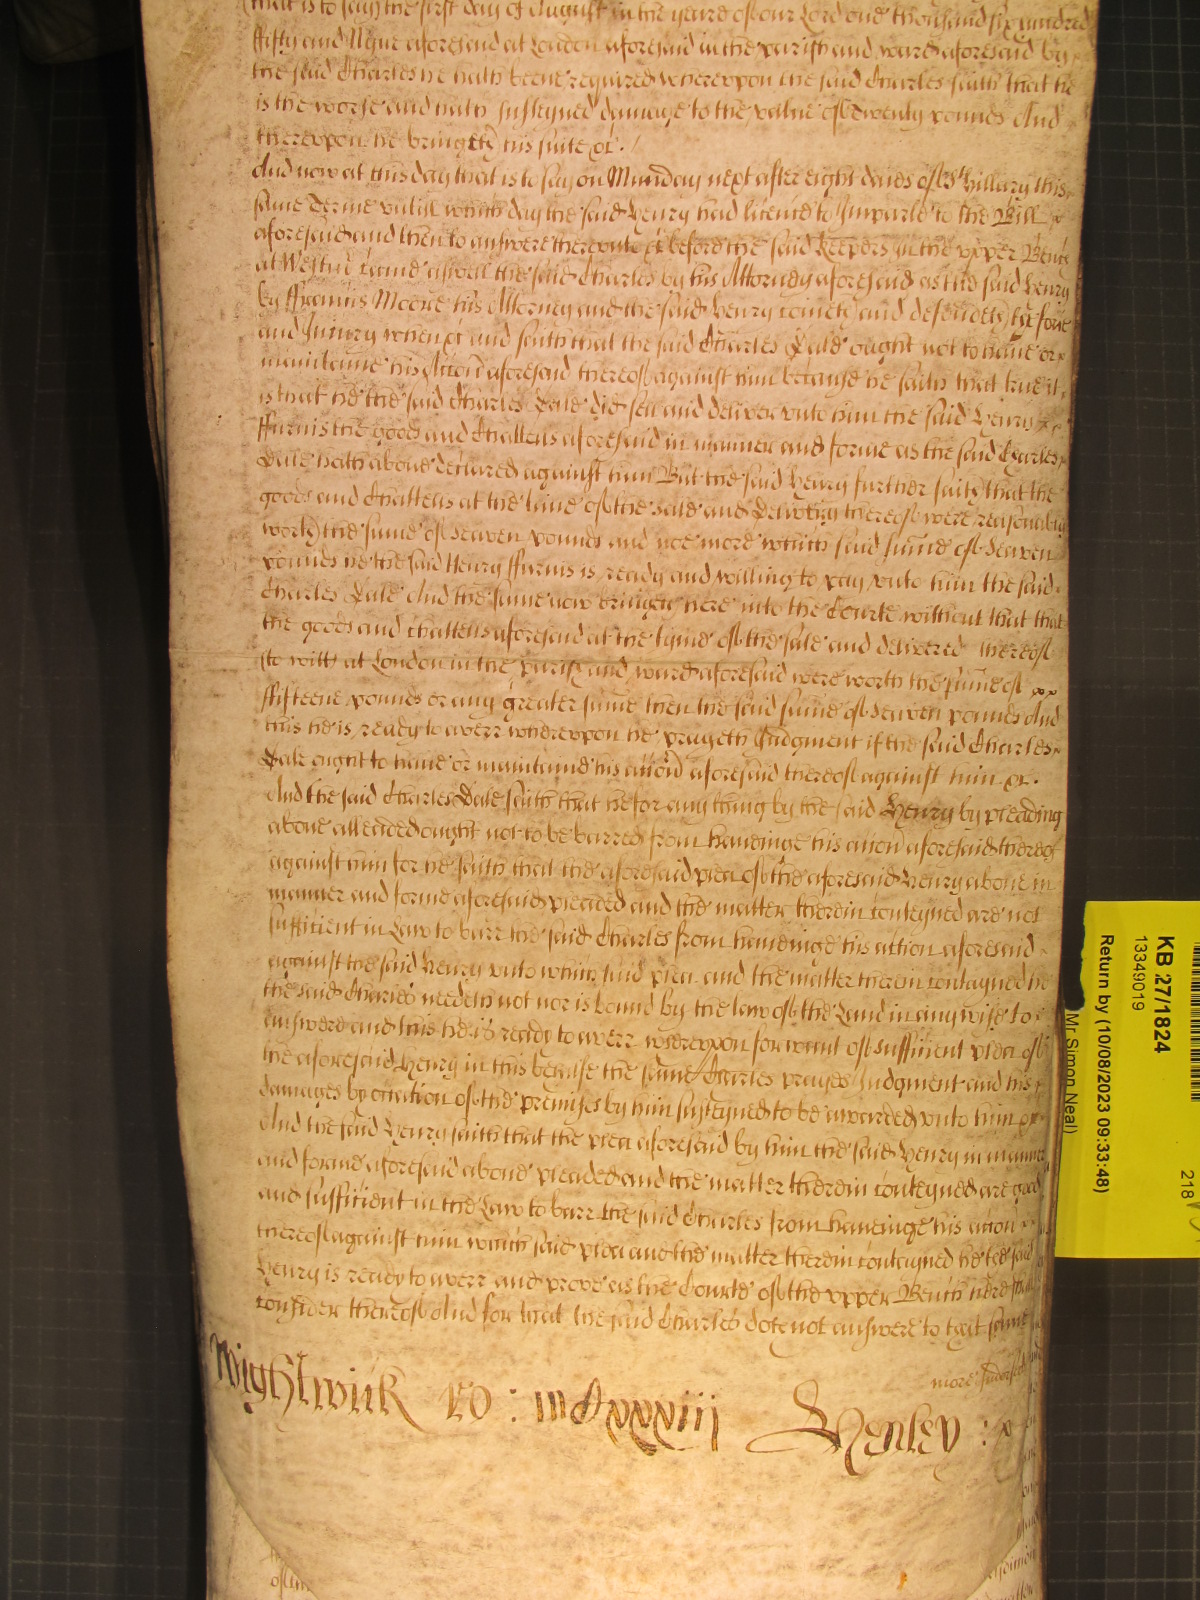 that is to say the first day of August in the yeare of our Lord one thousand six hundred
ffifty and Nyne aforesaid at London aforesaid in the parish and ward aforesaid by
the said Charles he hath beene required whereupon the said Charles saith that he
is the worse and hath susteyned damage to the value of twenty pounds And
thereupon he bringeth his suite &c. /
And now at this day that is to say on Munday next after eight daies of St Hillary this
same Terme untill which day the said Henry had licence to Imparle to the Bill
aforesaid and then to answere thereunto &c before the said keepers in the upper Bench
at Westmr came aswell the said Charles by his Attorney aforesaid as the said Henry
by ffrancis Moore his Attorney and the said Henry cometh and defendeth the force
and Injury when &c and saith that the said Charles Dale ought not to have or
mainteine his Accon aforesaid thereof against him because he saith that true it
is that he the said Charles Dale did sell and deliver unto him the said Henry
ffurnis the goods and Chattells aforesaid in manner and forme as the said Charles
Dale hath above declared against him But the said Henry further saith that the
goods and Chattells at the time of the sale and delivery thereof were reasonably
worth the sume of Seaven pounds and noe more which said sume of Seaven
pounds he the said Henry ffurnis is ready and willing to pay unto him the said
Charles Dale And the same now bringeth here into the Courte without that that
the goods and chattells aforesaid at the tyme of the sale and delivered thereof
(to witt) at London in the parish and ward aforesaid were worth the sume of
ffifteene pounds or any greater sume then the said sume of Seaven pounds And
this he is ready to averr whereupon he prayeth Judgment if the said Charles
Dale ought to have or maintaine his accon aforesaid thereof against him &c.
And the said Charles Dale saith that he for any thing by the said Henry by pleading
above alleadged ought not to be barred from haveinge his accon aforesaid thereof
against him for he saith that the aforesaid plea of the aforesaid Henry above in
manner and forme aforesaid pleaded and the matter therein conteyned are not
sufficient in Law to barr the said Charles from haveinge his action aforesaid
against the said Henry unto which said plea and the matter therein contayned he
the said Charles needeth not nor is bound by the law of the Land in any wise to
answere and this he is ready to averr whereupon for want of sufficient plea of
the aforesaid Henry in this behalfe the same Charles prayes Judgment and his
damages by occation of the premises by him susteyned to be awarded unto him &c
And the said Henry saith that the plea aforesaid by him the said Henry in manner
and forme aforesaid above pleaded and the matter therein conteyned are good
and sufficient in the Law to barr the said Charles from haveinge his accon
thereof against him which said plea and the matter therein contayned he the said
Henry is ready to averr and prove as the Courte of the upper Bench here shall
consider thereof And for that the said Charles doth not answere to that same
more Indorsed
Wightwick Ro: iiiiCxxxiii Henley:
KB 27/1824
13349019
Return by (10/08/2023 09:33:48)
Mr Simon Neal)
218